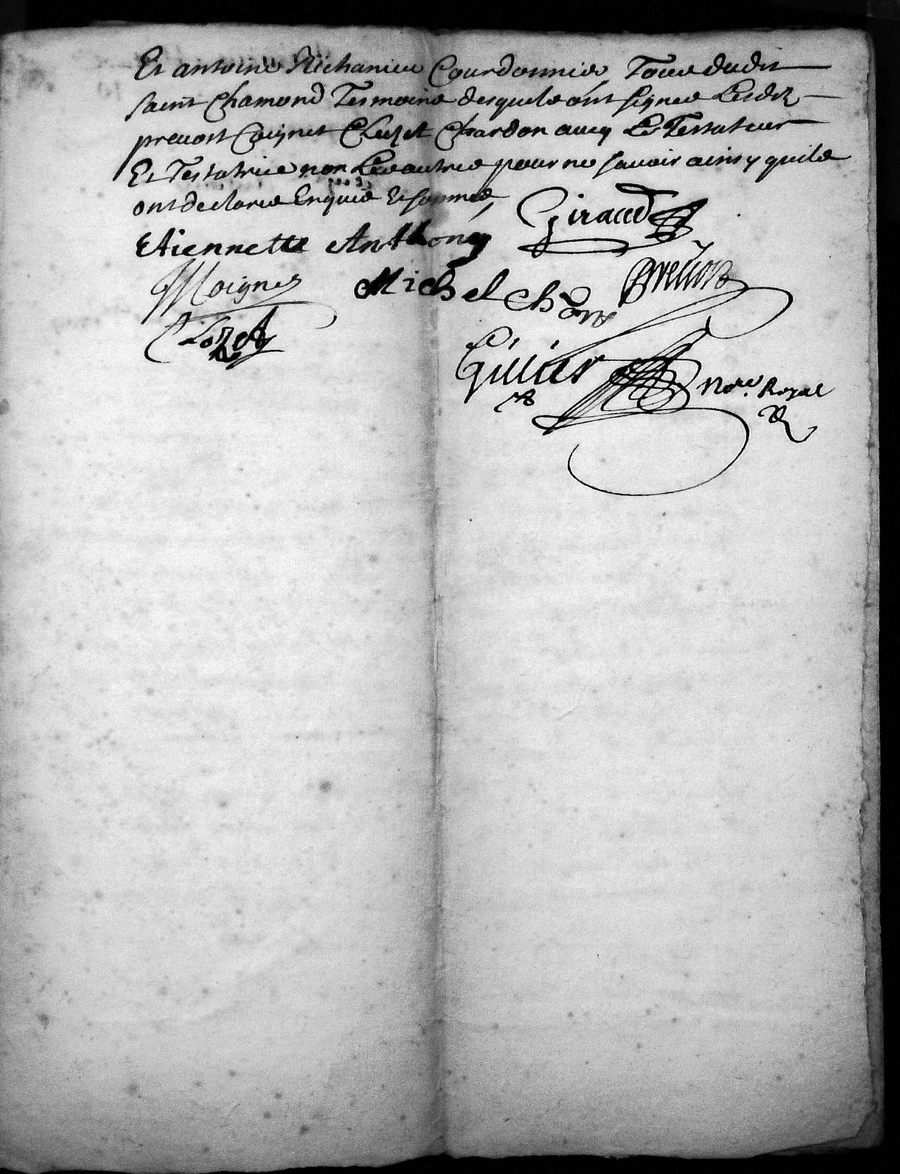 Et antoine Richanieu Courdonnié, Tous dudit
saint Chamond Tesmoins desquels ont signes Lesdz
prevost Coignet Cluzet Chardon avecq Le Testateur
Et Testatrice non Les autres pour ne savoir ainsy quils
ont declarés Enquis & sommes
Etiennette Anthony Giraud
Coignet Michel Char prevost
Clozet
Nore. Royal